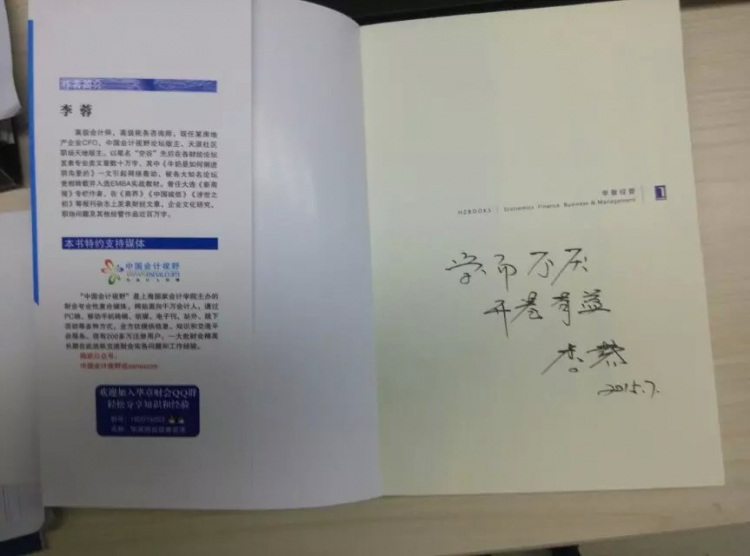 作者简介
李 蓉
高级会计师，高级税务咨询师，现任某房地
产企业CFO，中国会计视野论坛版主、天涯社区
职场天地版主。以笔名“空谷”先后在各财经论坛
发表专业类文章数十万字，其中《牛奶是如何掉进
阴沟里的》一文引起网络轰动，被各大知名论坛
竞相转载并入选EMBA实战教材。曾任大连《新商
报》专栏作家，在《商界》《中国建筑》《涉世之
初》等报刊杂志上发表财经文章、企业文化研究、
职场问题及其他经管作品近百万字。
本书特约支持媒体
中国会计视野
www.esnai.com
“中国会计视野”是上海国家会计学院主办的
财会专业性复合媒体。网站面向千万会计人，通过
PC端、移动手机端端、纸媒、电子刊、站外、线下
活动等多种方式，全方位提供信息、知识和交流平
台服务。现有200多万注册用户，一大批财会精英
长期在此活跃交流财会实务问题和工作经验。
微政公众号：
中国会计视野@esnaicom
欢迎加入华章财会QQ群
轻松分享知识和经验
群号：
华章经管
HZBOOKS | Economics Finance Business & Management
学而不厌
开卷有益
李蓉
2015.7.